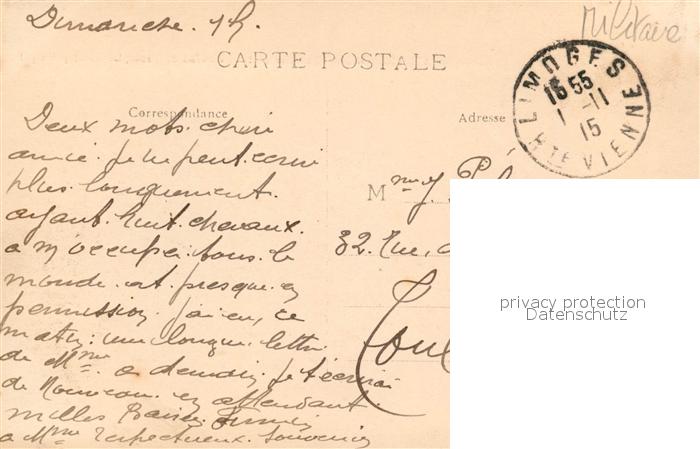 Dimanche. 15h.
Militaire
CARTE POSTALE
LIMOGES
16 55
1 - 11
15
Hte VIENNE
Correspondance
Adresse
Deux mots. chère
amie. je ne peut. écrire
plus longuement.
ayant. huit. chevaux.
a m'occuper. tous. le
monde. et. presque. en
permission. j'ai eu, ce
matin: une longue. lettre
de Mme. a demain. je t'écrirai
de Nouveau. en attendant.
milles Baisers.
a Mme respectueux. Souvenirs
Mme J.
32. Rue,
privacy protection
Datenschutz